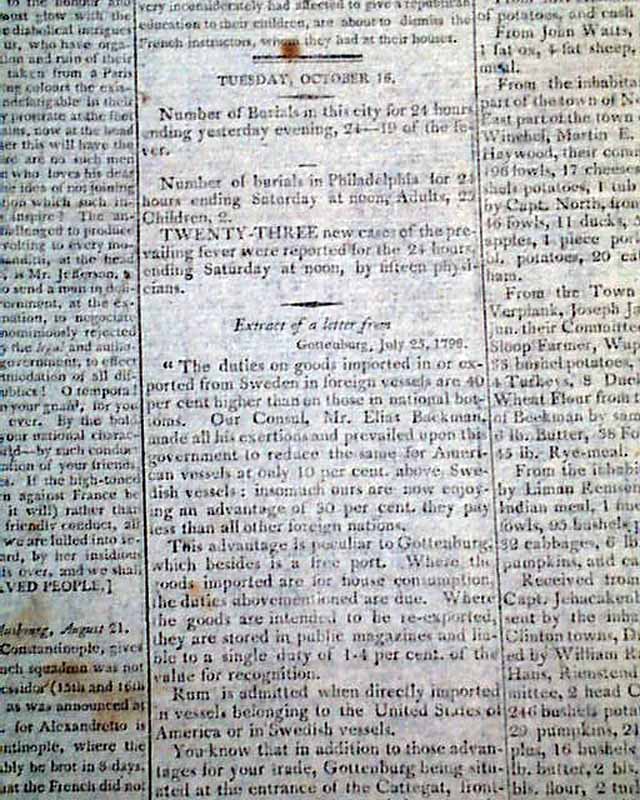 ost glow with the
diabolical intrigues
us, who have orga-
tion and ruin of their
taken from a Paris
ng colours the exis-
ndefatigable in their
y prostrate at the foot
ans, now at the head
er this will have the
re are no such men
n who loves his dear
he idea of not joining
tion which such in-
inspire? The an-
hallenged to produce
volting to every mo-
at the head
, is Mr. Jefferson, a
o send a man in
ernment, at the ex-
nation, to negociate
nominiously rejected
y the legal and
government, to effect
mmodation of all dif-
ublics! O tempora!
n your gnan', for you
ever. By the bold
your national charac-
rld—by such conduct
ation of your friends,
s. If the high-toned
n against France be
it will) rather than
friendly conduct, all
we are lulled into se-
ard, by her insidious
is over, and we shall
VED PEOPLE.]
August 21.
Constantinople, gives
nch squadron was not
essidor (15th and 16th
as was announced at
. for Alexandretto is
ntinople, where the
ably be brot in 8 days.
at the French did not
very inconsiderately had affected to give a republican
education to their children, are about to dismiss the
French instructors, whom they had at their houses.
TUESDAY, OCTOBER 16.
Number of Burials in this city for 24 hours
ending yesterday evening, 24—19 of the fe-
ver.
Number of burials in Philadelphia for 24
hours ending Saturday at noon, Adults, 25
Children, 2.
TWENTY-THREE new cases of the pre-
vailing fever were reported for the 24 hours
ending Saturday at noon, by fifteen physi-
cians.
Extract of a letter from
Gottenburg, July 25, 1798.
" The duties on goods imported in or ex-
ported from Sweden in foreign vessels are 40
per cent higher than on those in national bot-
toms. Our Consul, Mr. Elias Backman,
made all his exertions and prevailed upon this
government to reduce the same for Ameri-
can vessels at only 10 per cent. above Swe-
dish vessels: insomuch ours are now enjoy-
ing an advantage of 30 per cent. they pay
less than all other foreign nations.
This advantage is peculiar to Gottenburg,
which besides is a free port. Where the
goods imported are for house consumption,
the duties abovementioned are due. Where
the goods are intended to be re-exported,
they are stored in public magazines and lia-
ble to a single duty of 1-4 per cent. of the
value for recognition.
Rum is admitted when directly imported
in vessels belonging to the United States of
America or in Swedish vessels.
You know that in addition to those advan-
tages for your trade, Gottenburg being situ-
ated at the entrance of the Cattegat, front-
of potatoes, and cash
From John Watts,
1 fat ox, 4 fat sheep,
meal.
From the inhabita
part of the town of N
East part of the town
Winchel, Martin E.
Haywood, their com
96 fowls, 17 cheeses
shels potatoes, 1
by Capt. North, from
46 fowls, 11 ducks,
apples, 1 piece por
bl. potatoes, 20 ca
ham.
From the Town
Verplank, Joseph J
jun. their Committe
Sloop Farmer, Wap
bushel potatoes,
4 Turkeys, 8 Duc
Wheat Flour from t
of Beekman by sam
6 lb. Butter, 38 Fo
45 lb. Rye-meal.
From the inhabi
by Liman Remsen
Indian meal, 1 hun
fowls, 95 bushels
32 cabbages, 6 lb.
pumpkins, and ca
Received from
Capt. Jehacakent
sent by the inhab
Clinton towns, D
ed by William R
Hans,
mittee, 2 head C
246 bushels potat
29 pumpkins, 21
ples, 16 bushels
lb. butter, 2 bls.
bls. flour, 2 tur